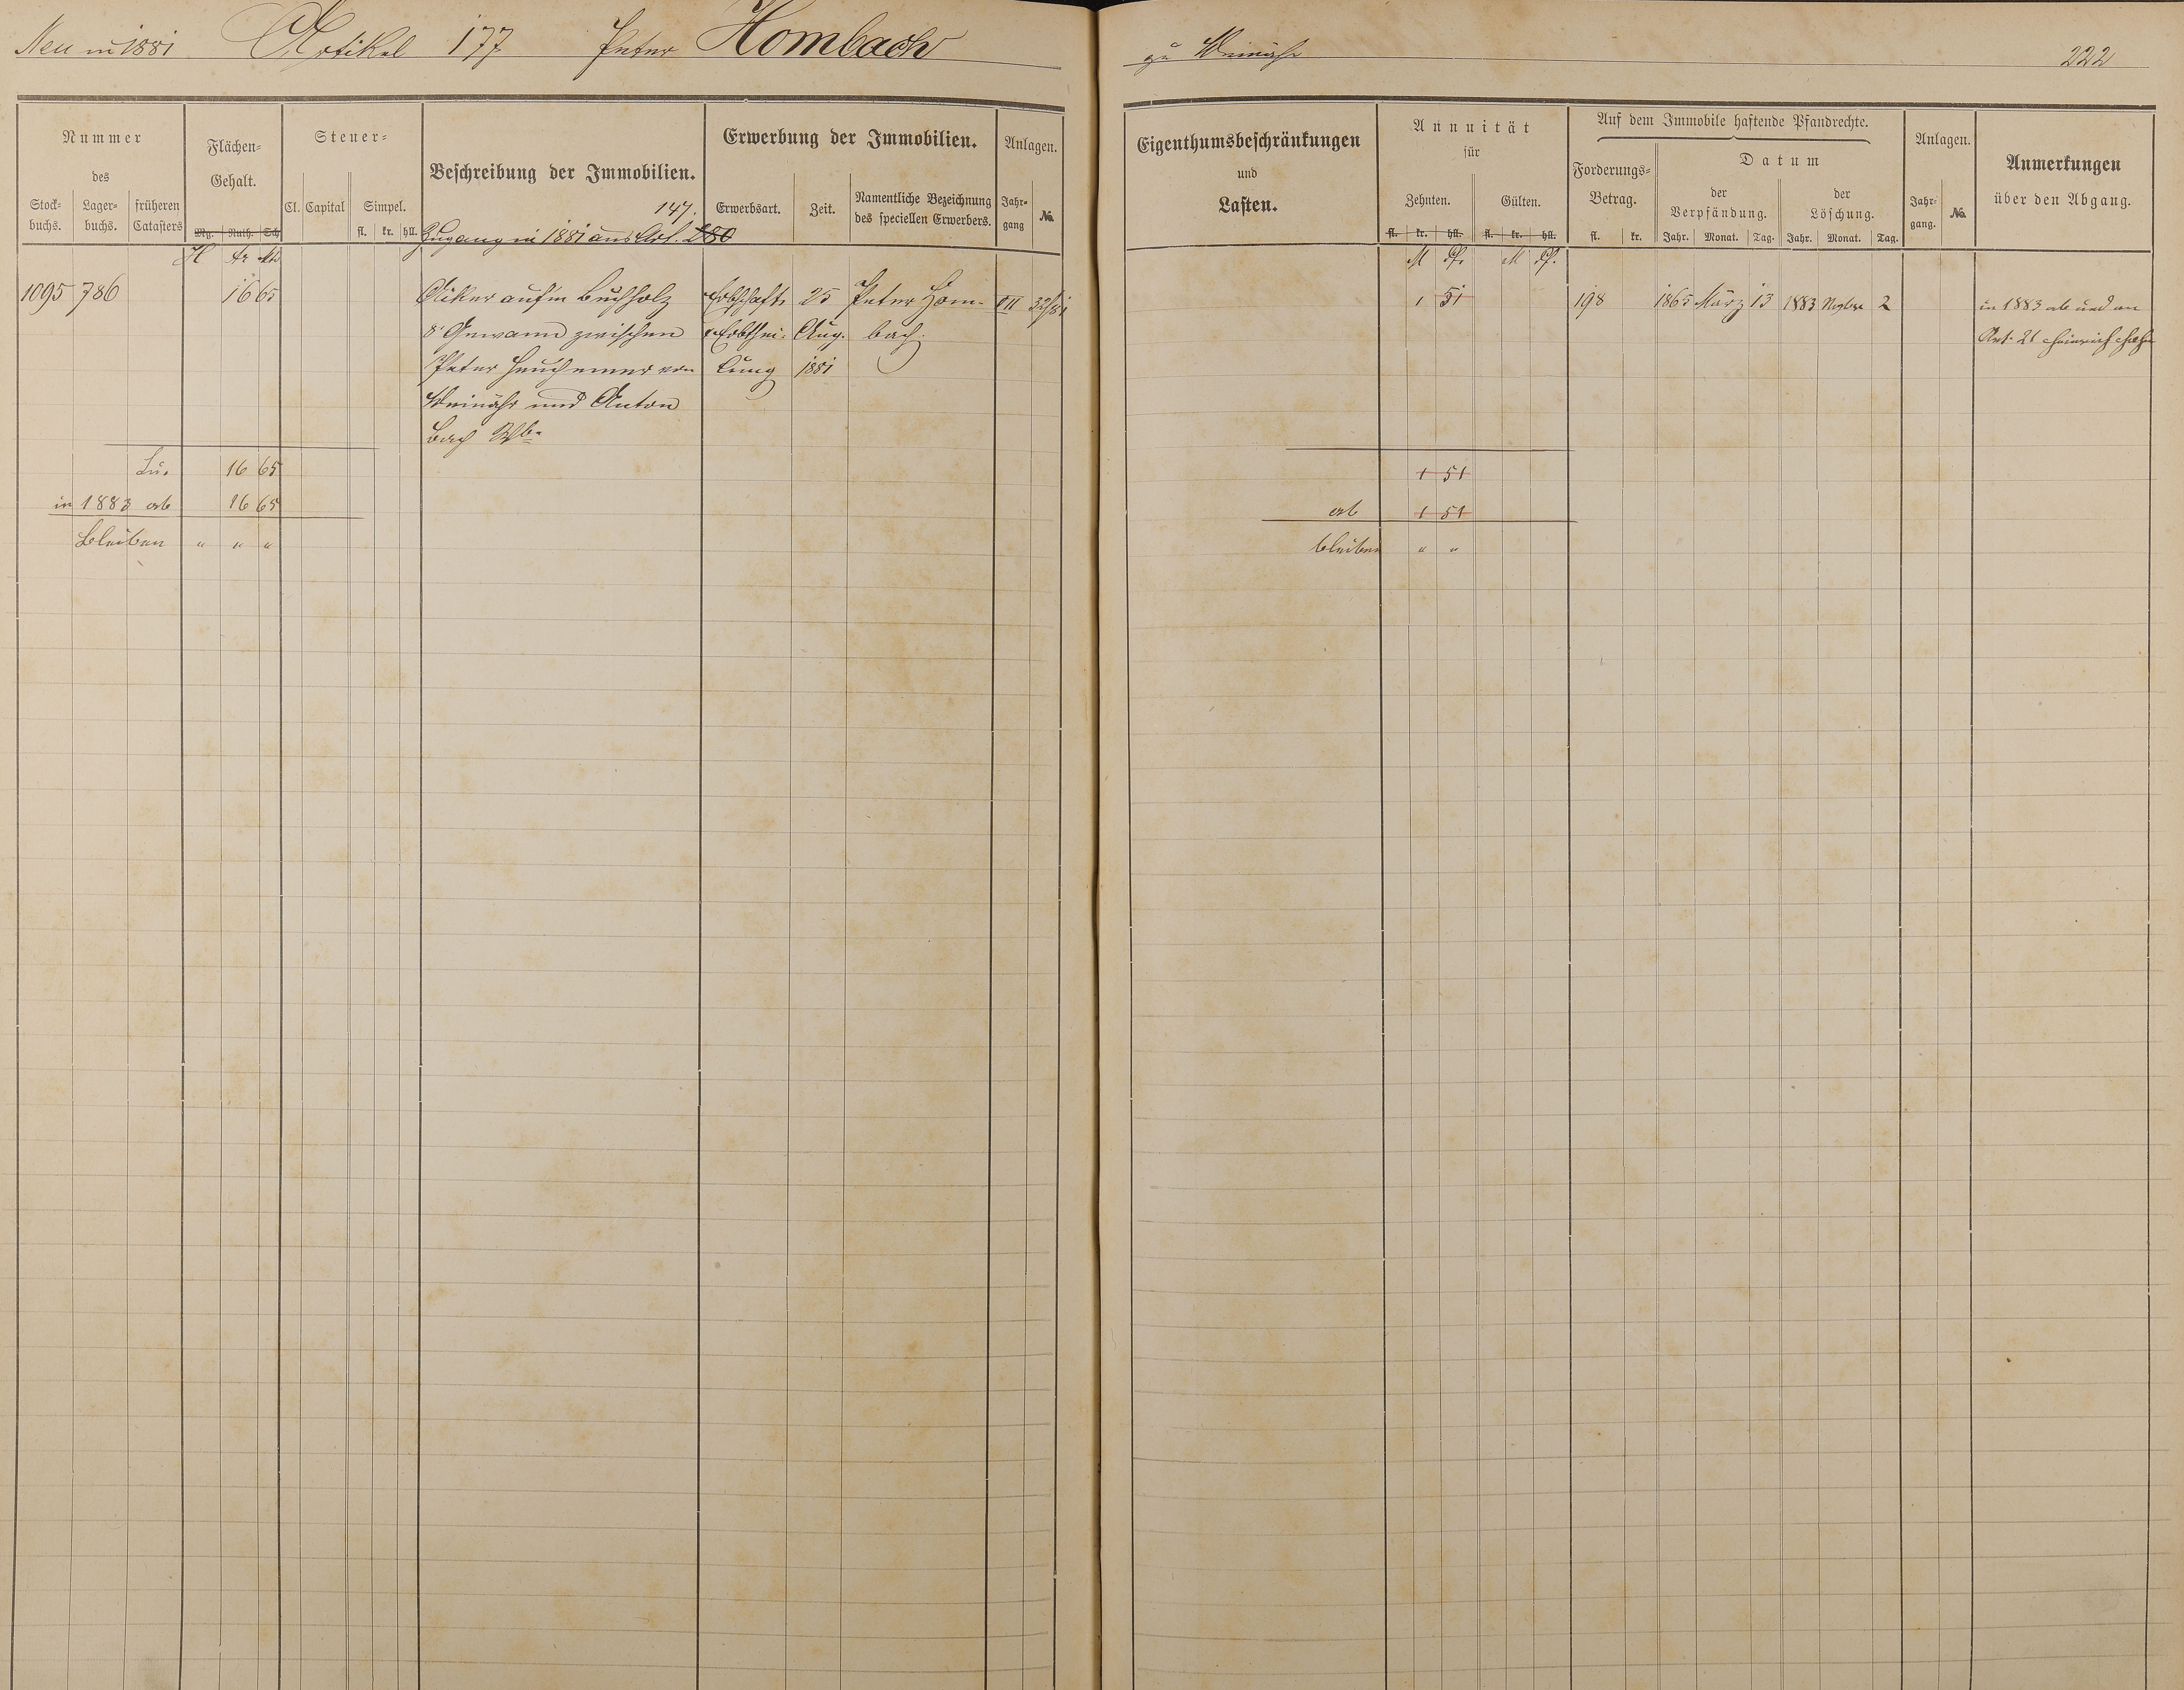 Neu in 1881 Artikel 177 Peter Hombach
zu Weinähr 222
Nummer
des
Stock-
buchs.
Lager-
buchs.
früheren
Catasters
Flächen-
Gehalt.
Mg. Ruth. Sch.
H Ar M
Steuer-
Cl. Capital Simpel.
fl. kr. hll.
Beschreibung der Immobilien.
147.
Zugang in 1881 aus Art. 280
Erwerbung der Immobilien.
Erwerbsart. Zeit.
Namentliche Bezeichnung
des speciellen Erwerbers.
Anlagen.
Jahr-
gang
No.
1095 786 16 65 Acker auf'm Buchholz Erbschaft 25 Peter Hom- VII 32/81
8' Gewann zwischen Erbthei- Aug. bach.
Peter Heuchemer von lung 1881
Weinähr und Anton
Bach
Su. 16 65
in 1883 ab 16 65
Bleiben " " "
Eigenthumsbeschränkungen
und
Lasten.
Annuität
für
Zehnten. Gülten.
fl. kr. hll. fl. kr. hll.
M Pf. M Pf.
Auf dem Immobile haftende Pfandrechte.
Forderungs-
Betrag.
fl. kr.
Datum
der
Verpfändung.
der
Löschung.
Jahr. Monat. Tag. Jahr. Monat. Tag.
Anlagen.
Jahr-
gang.
No.
Anmerkungen
über den Abgang.
1 51 198 1865 März 13 1883 Novbr 2 in 1883 ab und an
Art. 21 Heinrich
1 51
ab 1 51
bleiben " "